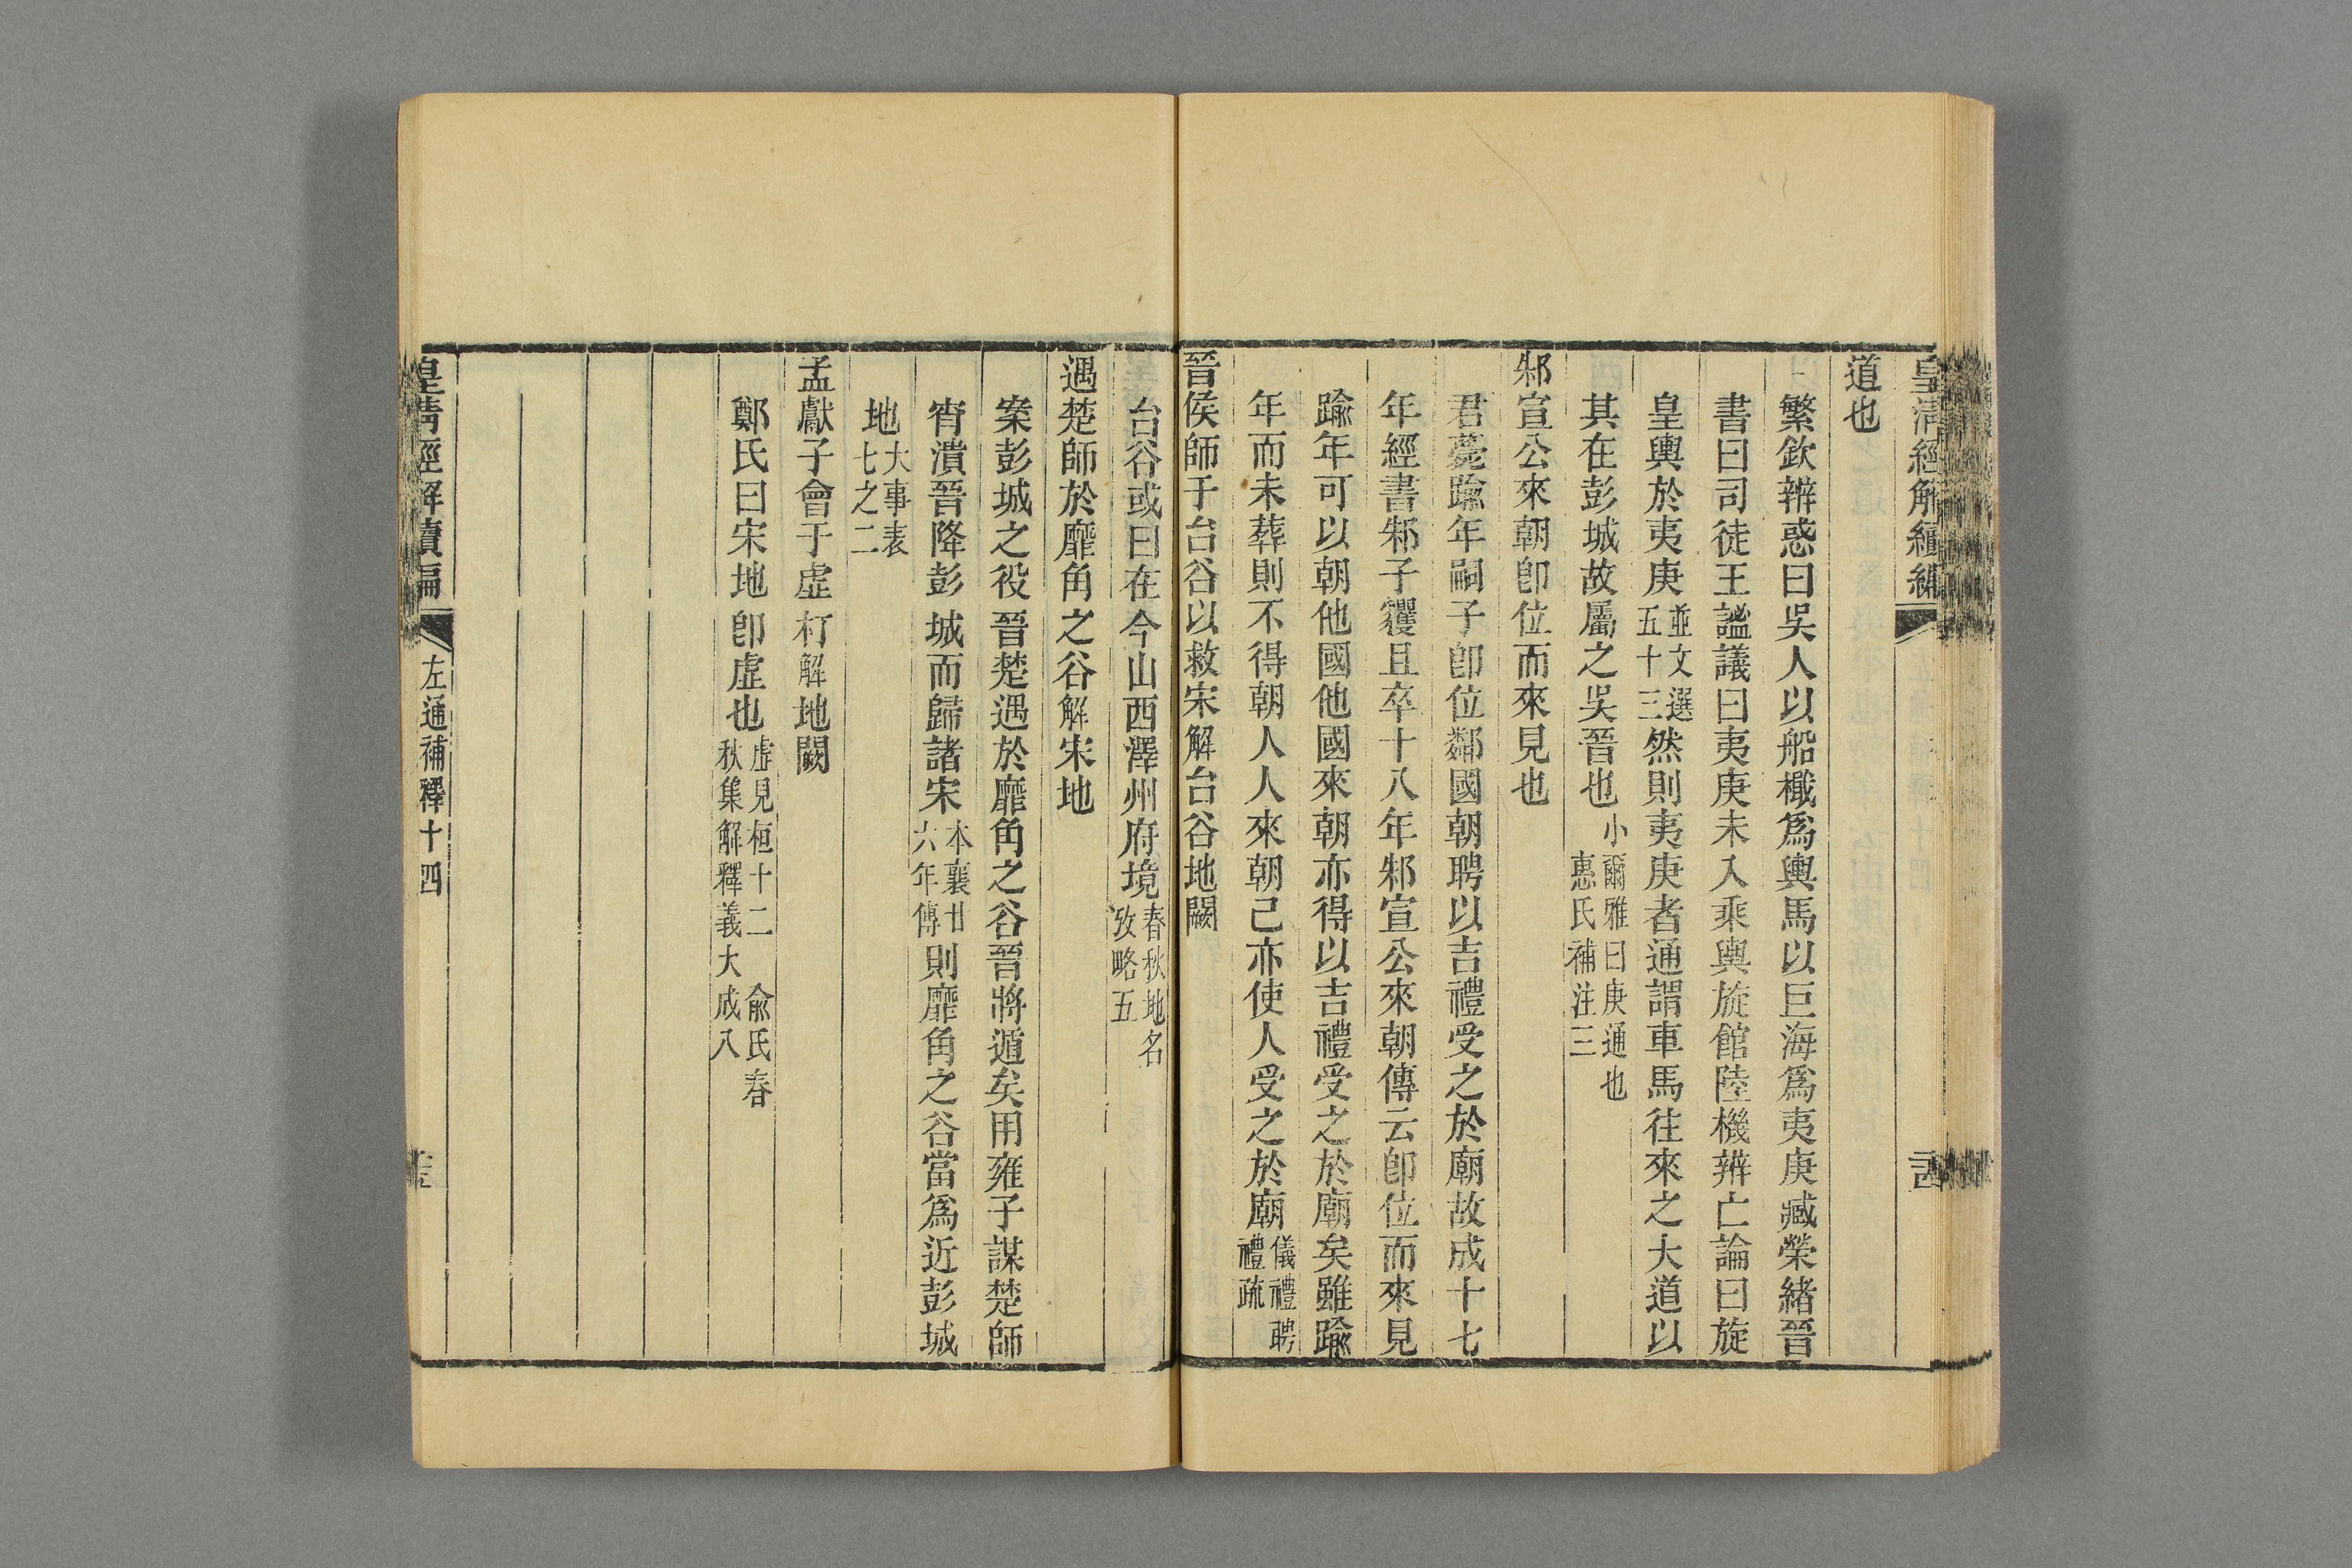 皇清經解續編
道也
繁欽辨惑曰吳人以船檝爲輿馬以巨海爲夷庚臧榮緒晉
書曰司徒王謐議曰夷庚未入乘輿旋館陸機辨亡論曰旋
皇輿於夷庚並文選五十三然則夷庚者通謂車馬往來之大道以
其在彭城故屬之吳晉也小爾雅曰庚通也惠氏補注三
邾宣公來朝卽位而來見也
君薨踰年嗣子卽位鄰國朝聘以吉禮受之於廟故成十七
年經書邾子貜且卒十八年邾宣公來朝傳云卽位而來見
踰年可以朝他國他國來朝亦得以吉禮受之於廟矣雖踰
年而未葬則不得朝人人來朝己亦使人受之於廟儀禮聘禮疏
晉侯師于台谷以救宋解台谷地闕
台谷或曰在今山西澤州府境春秋地名攷略五
遇楚師於靡角之谷解宋地
案彭城之役晉楚遇於靡角之谷晉將遁矣用雍子謀楚師
宵潰晉降彭城而歸諸宋本襄廿六年傳則靡角之谷當爲近彭城
地大事表七之二
孟獻子會于虛朾解地闕
鄭氏曰宋地卽虛也虛見桓十二俞氏春秋集解釋義大成八
皇淸經解續編
左通補釋十四